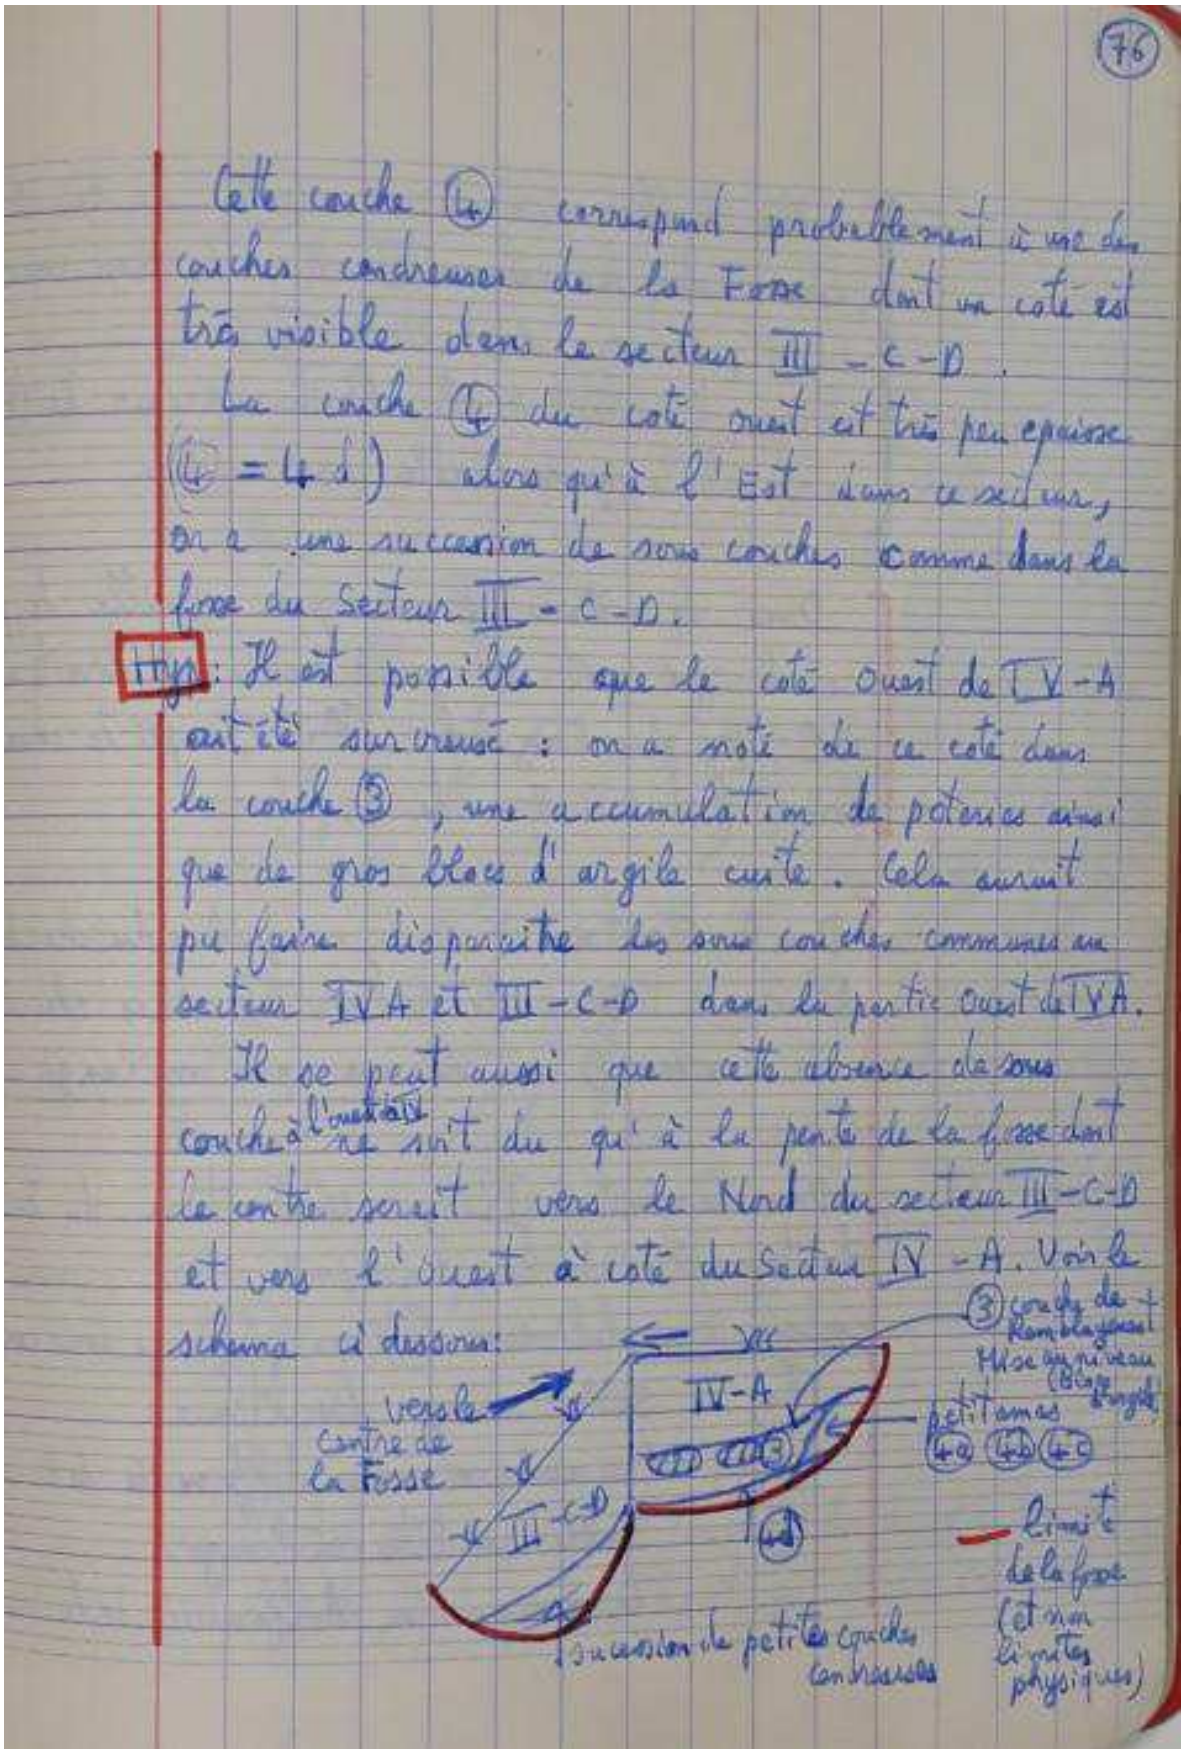 76
Cette couche ④ correspond probablement à une des
couches cendreuses de la Fosse dont un coté est
très visible dans le secteur III - C - D.
La couche ④ du coté ouest est très peu epaisse
(④ = 4 d) alors qu'à l'Est dans ce secteur,
on a une succession de sous couches comme dans la
fosse du Secteur III - C - D.
Hyp : Il est possible que le coté Ouest de IV - A
ait été surcreusé : on a noté de ce coté dans
la couche ③, une accumulation de poteries ainsi
que de gros blocs d'argile cuite. Cela aurait
pu faire disparaitre les sous couches communes au
secteur IVA et III - C - D dans la partie Ouest de IVA.
Il se peut aussi que cette absence de sous
couche à l'ouest ne soit du qu'à la pente de la fosse dont
le centre serait vers le Nord du secteur III - C - D
et vers l'Ouest à coté du Secteur IV - A. Voir le
schema ci dessous:
③ couche de +
Remblayement
Mise au niveau
(Blocs
Argile)
IV - A
vers le
centre de
la Fosse
petit amas
④a ④b ④c
③
III - C - D
④d
limite
de la fosse
(et non
limites
physiques)
sucession de petites couches
cendreuses